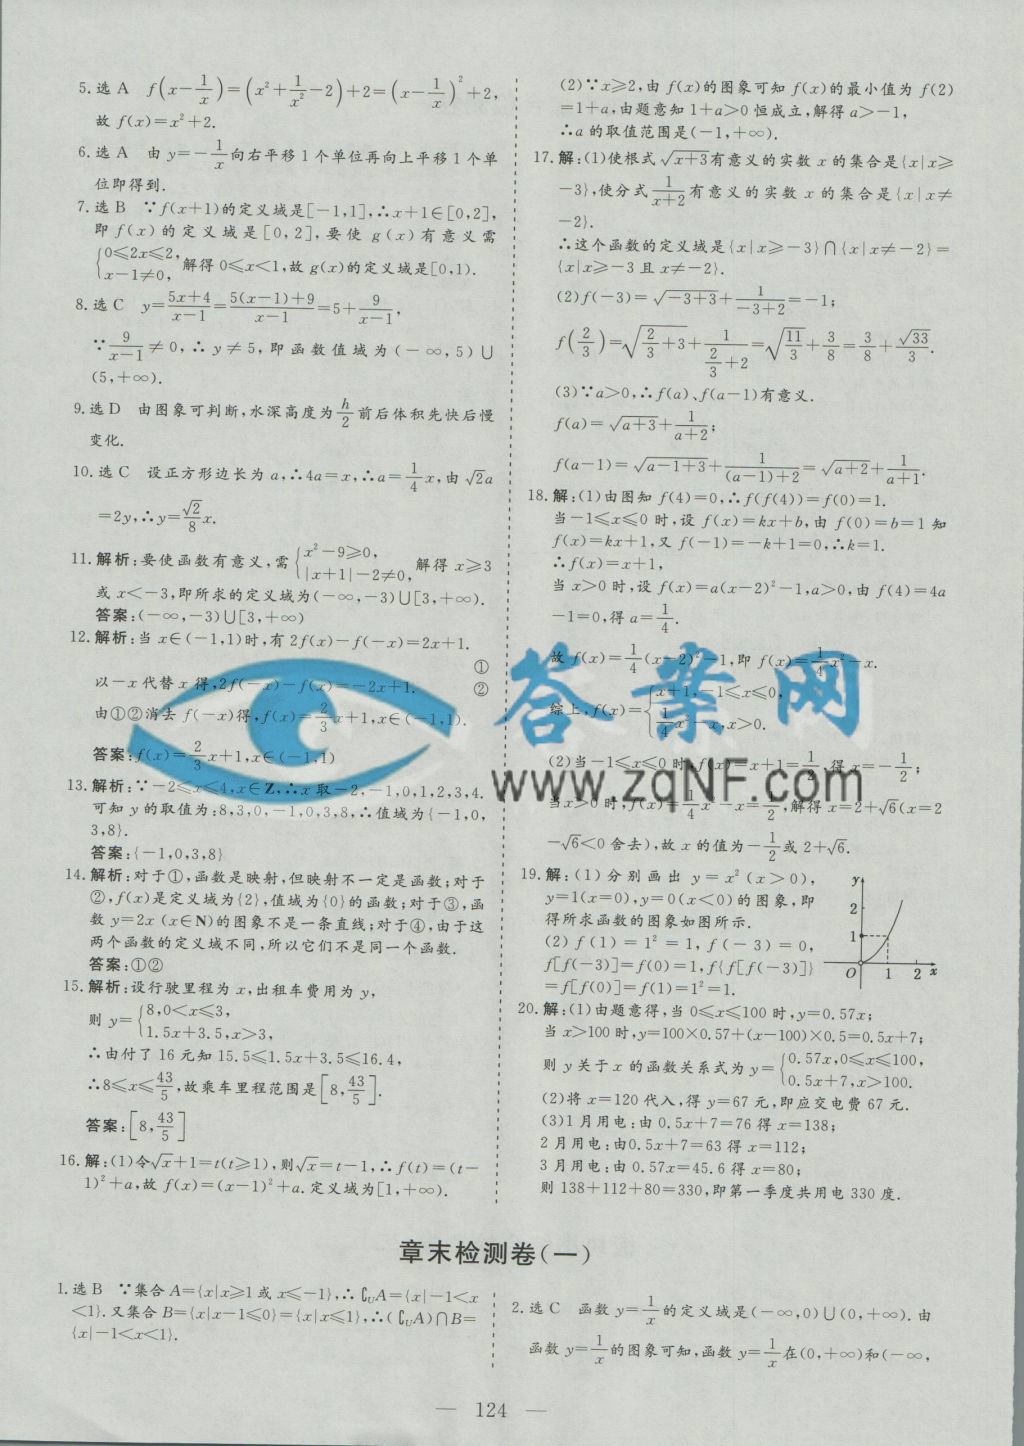 5.选A f(x-1/x)=(x²+1/x²-2)+2=(x-1/x)²+2,
故 f(x)=x²+2.
6.选A 由 y=-1/x 向右平移1个单位再向上平移1个单
位即得到.
7.选B ∵f(x+1)的定义域是[-1,1],∴x+1∈[0,2],
即 f(x) 的定义域是[0,2],要使 g(x) 有意义需
{0≤2x≤2,
x-1≠0, 解得0≤x<1,故g(x)的定义域是[0,1).
8.选C y=(5x+4)/(x-1)=(5(x-1)+9)/(x-1)=5+9/(x-1),
∵9/(x-1)≠0,∴y≠5,即函数值域为(-∞,5)∪
(5,+∞).
9.选D 由图象可判断,水深高度为h/2前后体积先快后慢
变化.
10.选C 设正方形边长为a,∴4a=x,∴a=1/4x,由√2a
=2y,∴y=√2/8x.
11.解析:要使函数有意义,需{x²-9≥0,
|x+1|-2≠0, 解得 x≥3
或x<-3,即所求的定义域为(-∞,-3)∪[3,+∞).
答案:(-∞,-3)∪[3,+∞)
12.解析:当x∈(-1,1)时,有2f(x)-f(-x)=2x+1.
①
以-x代替x得,2f(-x)-f(x)=-2x+1. ②
由①②消去 f(-x)得,f(x)=2/3x+1,x∈(-1,1).
答案:f(x)=2/3x+1,x∈(-1,1)
13.解析:∵-2≤x≤4,x∈Z,∴x取-2,-1,0,1,2,3,4.
可知y的取值为:8,3,0,-1,0,3,8,∴值域为{-1,0,
3,8}.
答案:{-1,0,3,8}
14.解析:对于①,函数是映射,但映射不一定是函数;对于
②,f(x)是定义域为{2},值域为{0}的函数;对于③,函
数y=2x (x∈N)的图象不是一条直线;对于④,由于这
两个函数的定义域不同,所以它们不是同一个函数.
答案:①②
15.解析:设行驶里程为x,出租车费用为y,
则 y={8,0<x≤3,
1.5x+3.5,x>3,
∴由付了16元知15.5≤1.5x+3.5≤16.4,
∴8≤x≤43/5,故乘车里程范围是[8,43/5].
答案:[8,43/5]
16.解:(1)令√x+1=t(t≥1),则√x=t-1,∴f(t)=(t-
1)²+a,故 f(x)=(x-1)²+a.定义域为[1,+∞).
(2)∵x≥2,由 f(x)的图象可知 f(x)的最小值为 f(2)
=1+a,由题意知1+a>0恒成立,解得a>-1,
∴a的取值范围是(-1,+∞).
17.解:(1)使根式√(x+3)有意义的实数x的集合是{x|x≥
-3},使分式1/(x+2)有意义的实数x的集合是{x|x≠
-2}.
∴这个函数的定义域是{x|x≥-3}∩{x|x≠-2}=
{x|x≥-3且x≠-2}.
(2)f(-3)=√(-3+3)+1/(-3+2)=-1;
f(2/3)=√(2/3+3)+1/(2/3+2)=√(11/3)+3/8=3/8+√33/3.
(3)∵a>0,∴f(a)、f(a-1)有意义.
f(a)=√(a+3)+1/(a+2);
f(a-1)=√(a-1+3)+1/((a-1)+2)=√(a+2)+1/(a+1).
18.解:(1)由图知 f(4)=0,∴f(f(4))=f(0)=1.
当-1≤x≤0时,设 f(x)=kx+b,由 f(0)=b=1知
f(x)=kx+1,又 f(-1)=-k+1=0,∴k=1.
∴f(x)=x+1,
当x>0时,设 f(x)=a(x-2)²-1,a>0,由 f(4)=4a
-1=0,得a=1/4.
故 f(x)=1/4(x-2)²-1,即 f(x)=1/4x²-x.
综上,f(x)={x+1,-1≤x≤0,
1/4x²-x,x>0.
(2)当-1≤x≤0时,f(x)=x+1=1/2,得x=-1/2;
当x>0时,f(x)=1/4x²-x=1/2,解得x=2+√6(x=2
-√6<0舍去),故x的值为-1/2或2+√6.
19.解:(1)分别画出 y=x²(x>0),
y=1(x=0),y=0(x<0)的图象,即
得所求函数的图象如图所示.
(2) f(1)=1²=1,f(-3)=0,
f[f(-3)]=f(0)=1,f{f[f(-3)]}
=f[f(0)]=f(1)=1²=1.
y
2
1
O 1 2 x
20.解:(1)由题意得,当0≤x≤100时,y=0.57x;
当x>100时,y=100×0.57+(x-100)×0.5=0.5x+7;
则y关于x的函数关系式为y={0.57x,0≤x≤100,
0.5x+7,x>100.
(2)将x=120代入,得y=67元,即应交电费67元.
(3)1月用电:由0.5x+7=76得x=138;
2月用电:由0.5x+7=63得x=112;
3月用电:由0.57x=45.6得x=80;
则138+112+80=330,即第一季度共用电330度.
答案网
www.zqNF.com
章末检测卷(一)
1.选B ∵集合A={x|x≥1或x≤-1},∴∁UA={x|-1<x
<1}.又集合B={x|x-1≤0}={x|x≤1},∴(∁UA)∩B=
{x|-1<x<1}.
2.选C 函数y=1/x的定义域是(-∞,0)∪(0,+∞).由
函数y=1/x的图象可知,函数y=1/x在(0,+∞)和(-∞,
— 124 —